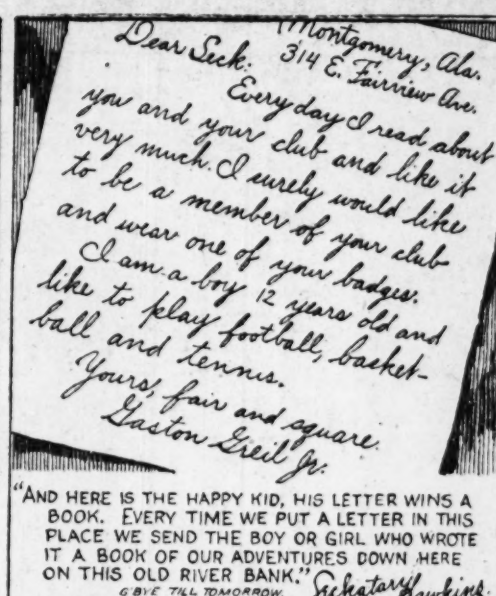 Montgomery, Ala.
314 E. Fairview Ave.
Dear Seck:
Every day I read about
you and your club and like it
very much. I surely would like
to be a member of your club
and wear one of your badges.
I am a boy 12 years old and
like to play football, basket-
ball and tennis.
Yours, fair and square.
Gaston Greil Jr.
"AND HERE IS THE HAPPY KID, HIS LETTER WINS A
BOOK. EVERY TIME WE PUT A LETTER IN THIS
PLACE WE SEND THE BOY OR GIRL WHO WROTE
IT A BOOK OF OUR ADVENTURES DOWN HERE
ON THIS OLD RIVER BANK."
G'BYE TILL TOMORROW. Seckatary Hawkins.